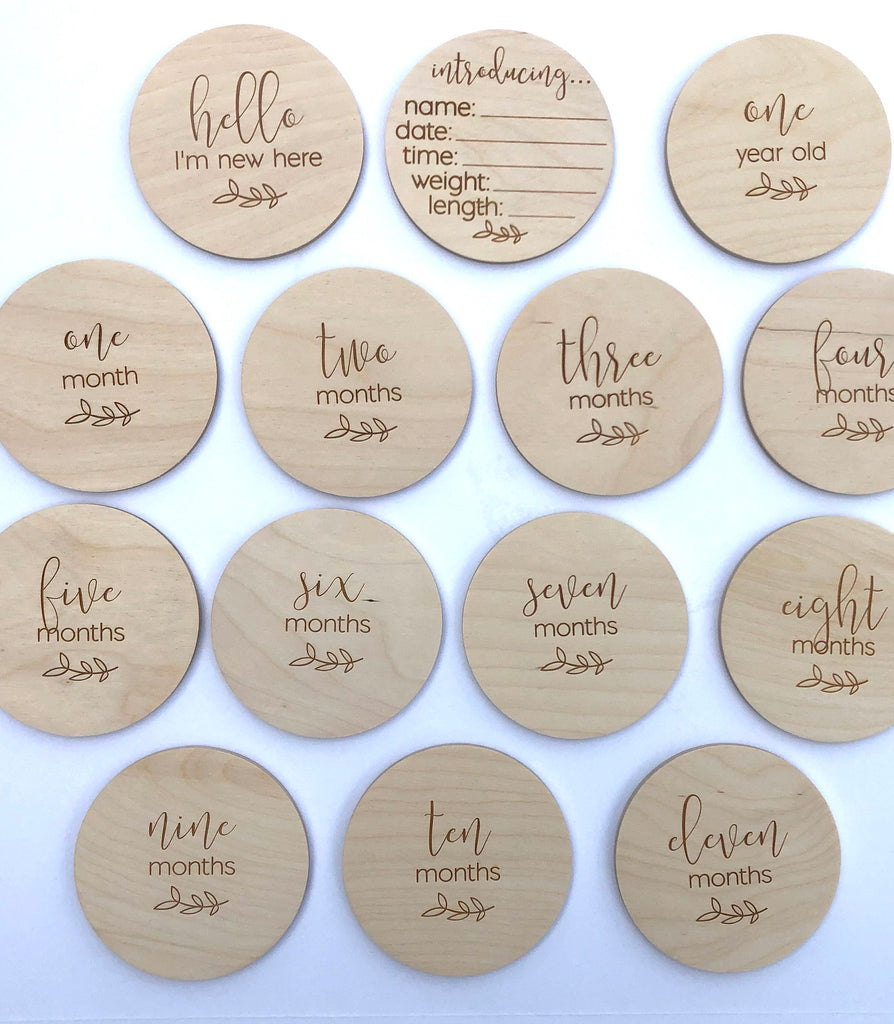 hello
I'm new here
introducing...
name:
date:
time:
weight:
length:
one
year old
one
month
two
months
three
months
four
months
five
months
six
months
seven
months
eight
months
nine
months
ten
months
eleven
months